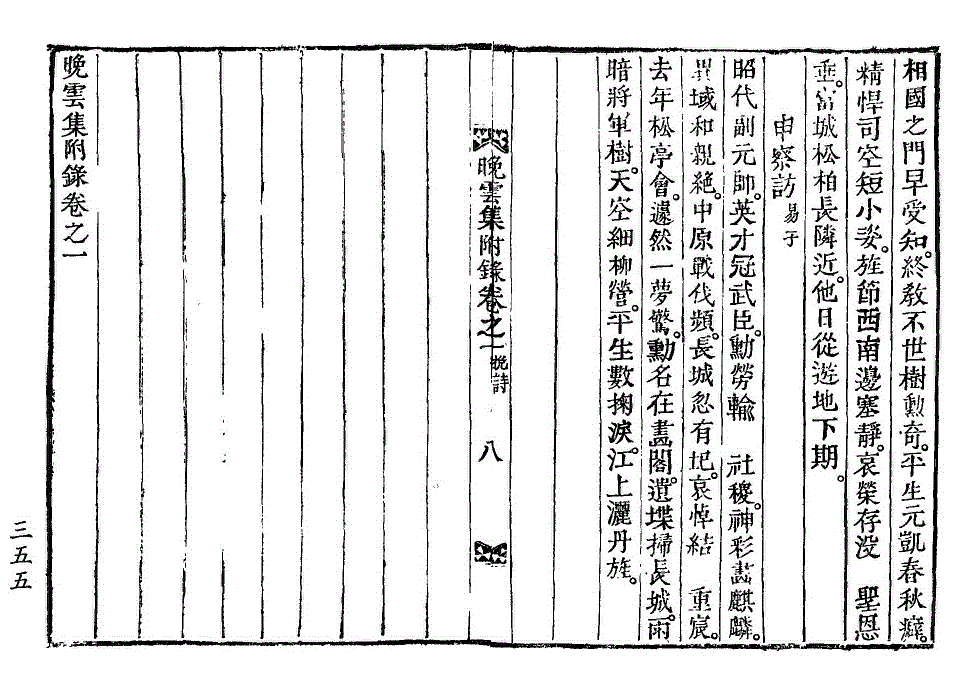 相國之門早受知。終敎不世樹勳奇。平生元凱春秋癖。
精悍司空短小姿。旌節西南邊塞靜。哀榮存沒　聖恩
垂。富城松柏長隣近。他日從遊地下期。
申察訪 易于
昭代副元帥。英才冠武臣。勳勞輸　社稷。神彩畵麒麟。
異域和親絶。中原戰伐頻。長城忽有圮。哀悼結　重宸。
去年松亭會。遽然一夢驚。勳名在畵閣。遺堞掃長城。雨
暗將軍樹。天空細柳營。平生數掬淚。江上灑丹旌。
晚雲集附錄卷之一 挽詩 八
晚雲集附錄卷之一
三五五